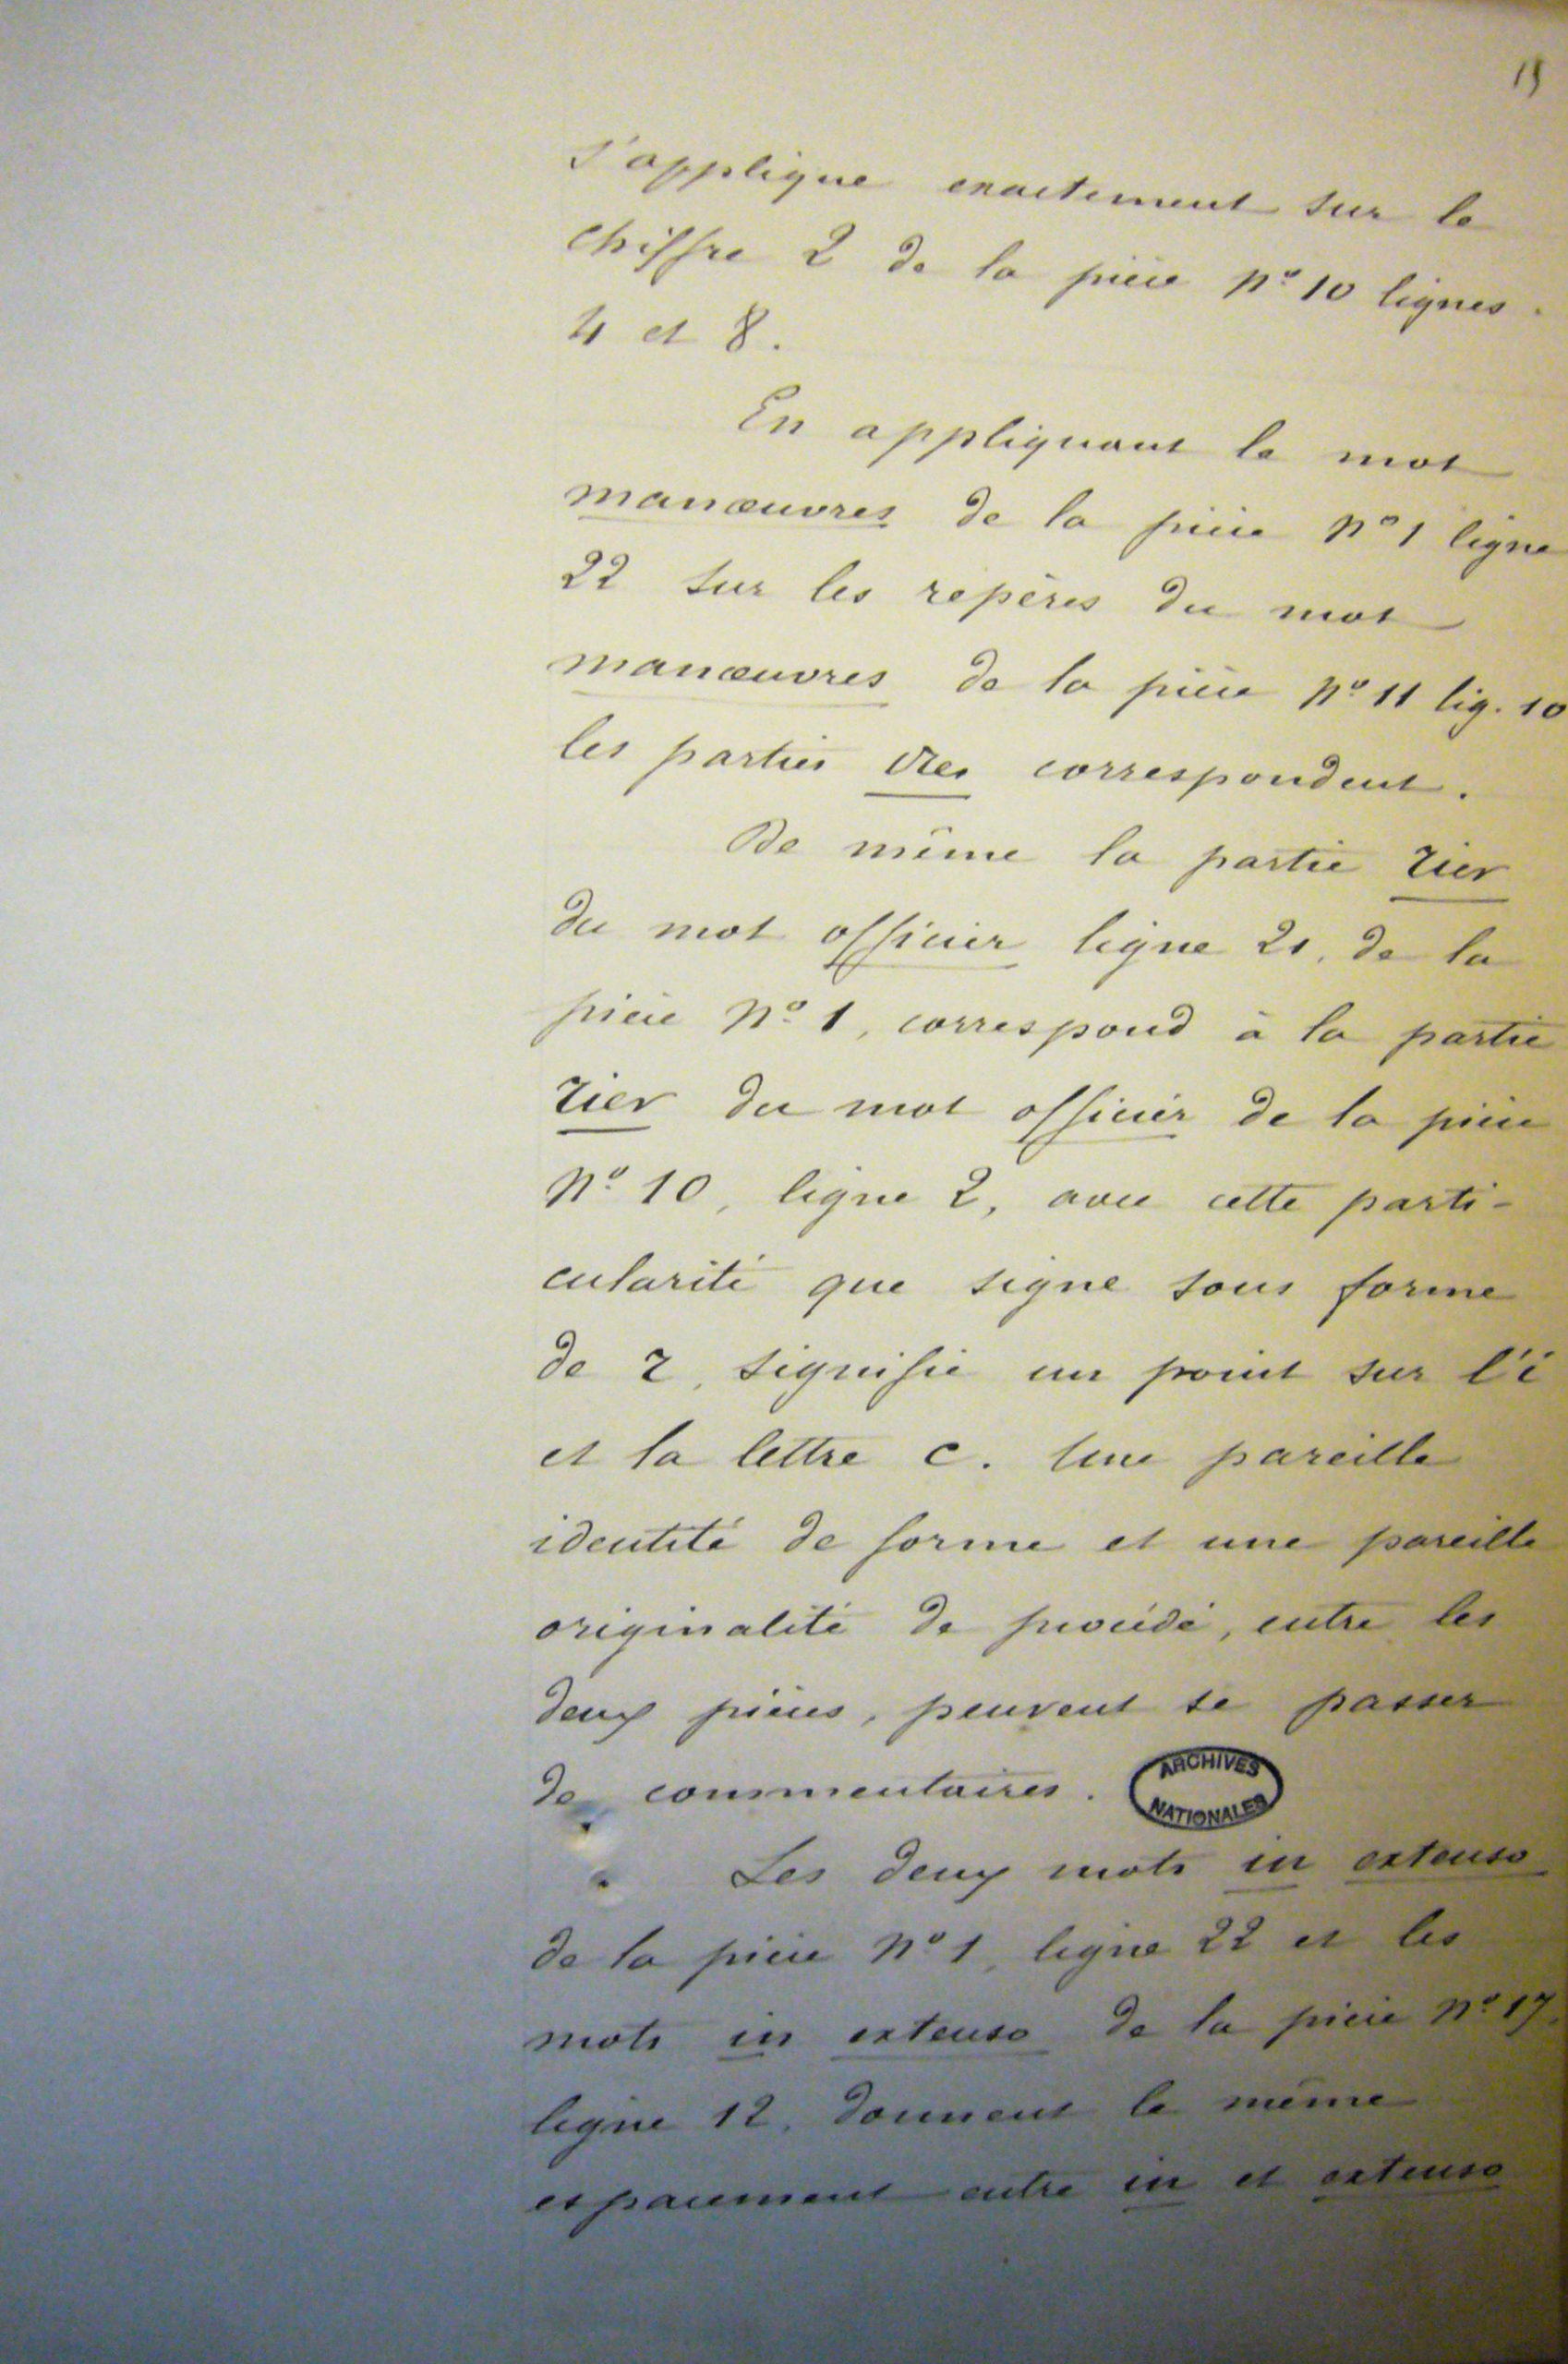 15
s'applique exactement sur le
chiffre 2 de la pièce Nº 10 lignes
4 et 8.
En appliquant le mot
manœuvres de la pièce Nº 1 ligne
22 sur les repères du mot
manœuvres de la pièce Nº 11 lig. 10
les parties vres correspondent.
De même la partie rier
du mot officier ligne 21, de la
pièce Nº 1, correspond à la partie
rier du mot officier de la pièce
Nº 10, ligne 2, avec cette parti-
cularité que signe sous forme
de r, signifie un point sur l'i
et la lettre c. Une pareille
identité de forme et une pareille
originalité de procédé, entre les
deux pièces, peuvent se passer
de commentaires.
ARCHIVES
NATIONALES
Les deux mots in extenso
de la pièce Nº 1, ligne 22 et les
mots in extenso de la pièce Nº 17,
ligne 12, donnent le même
espacement entre in et extenso